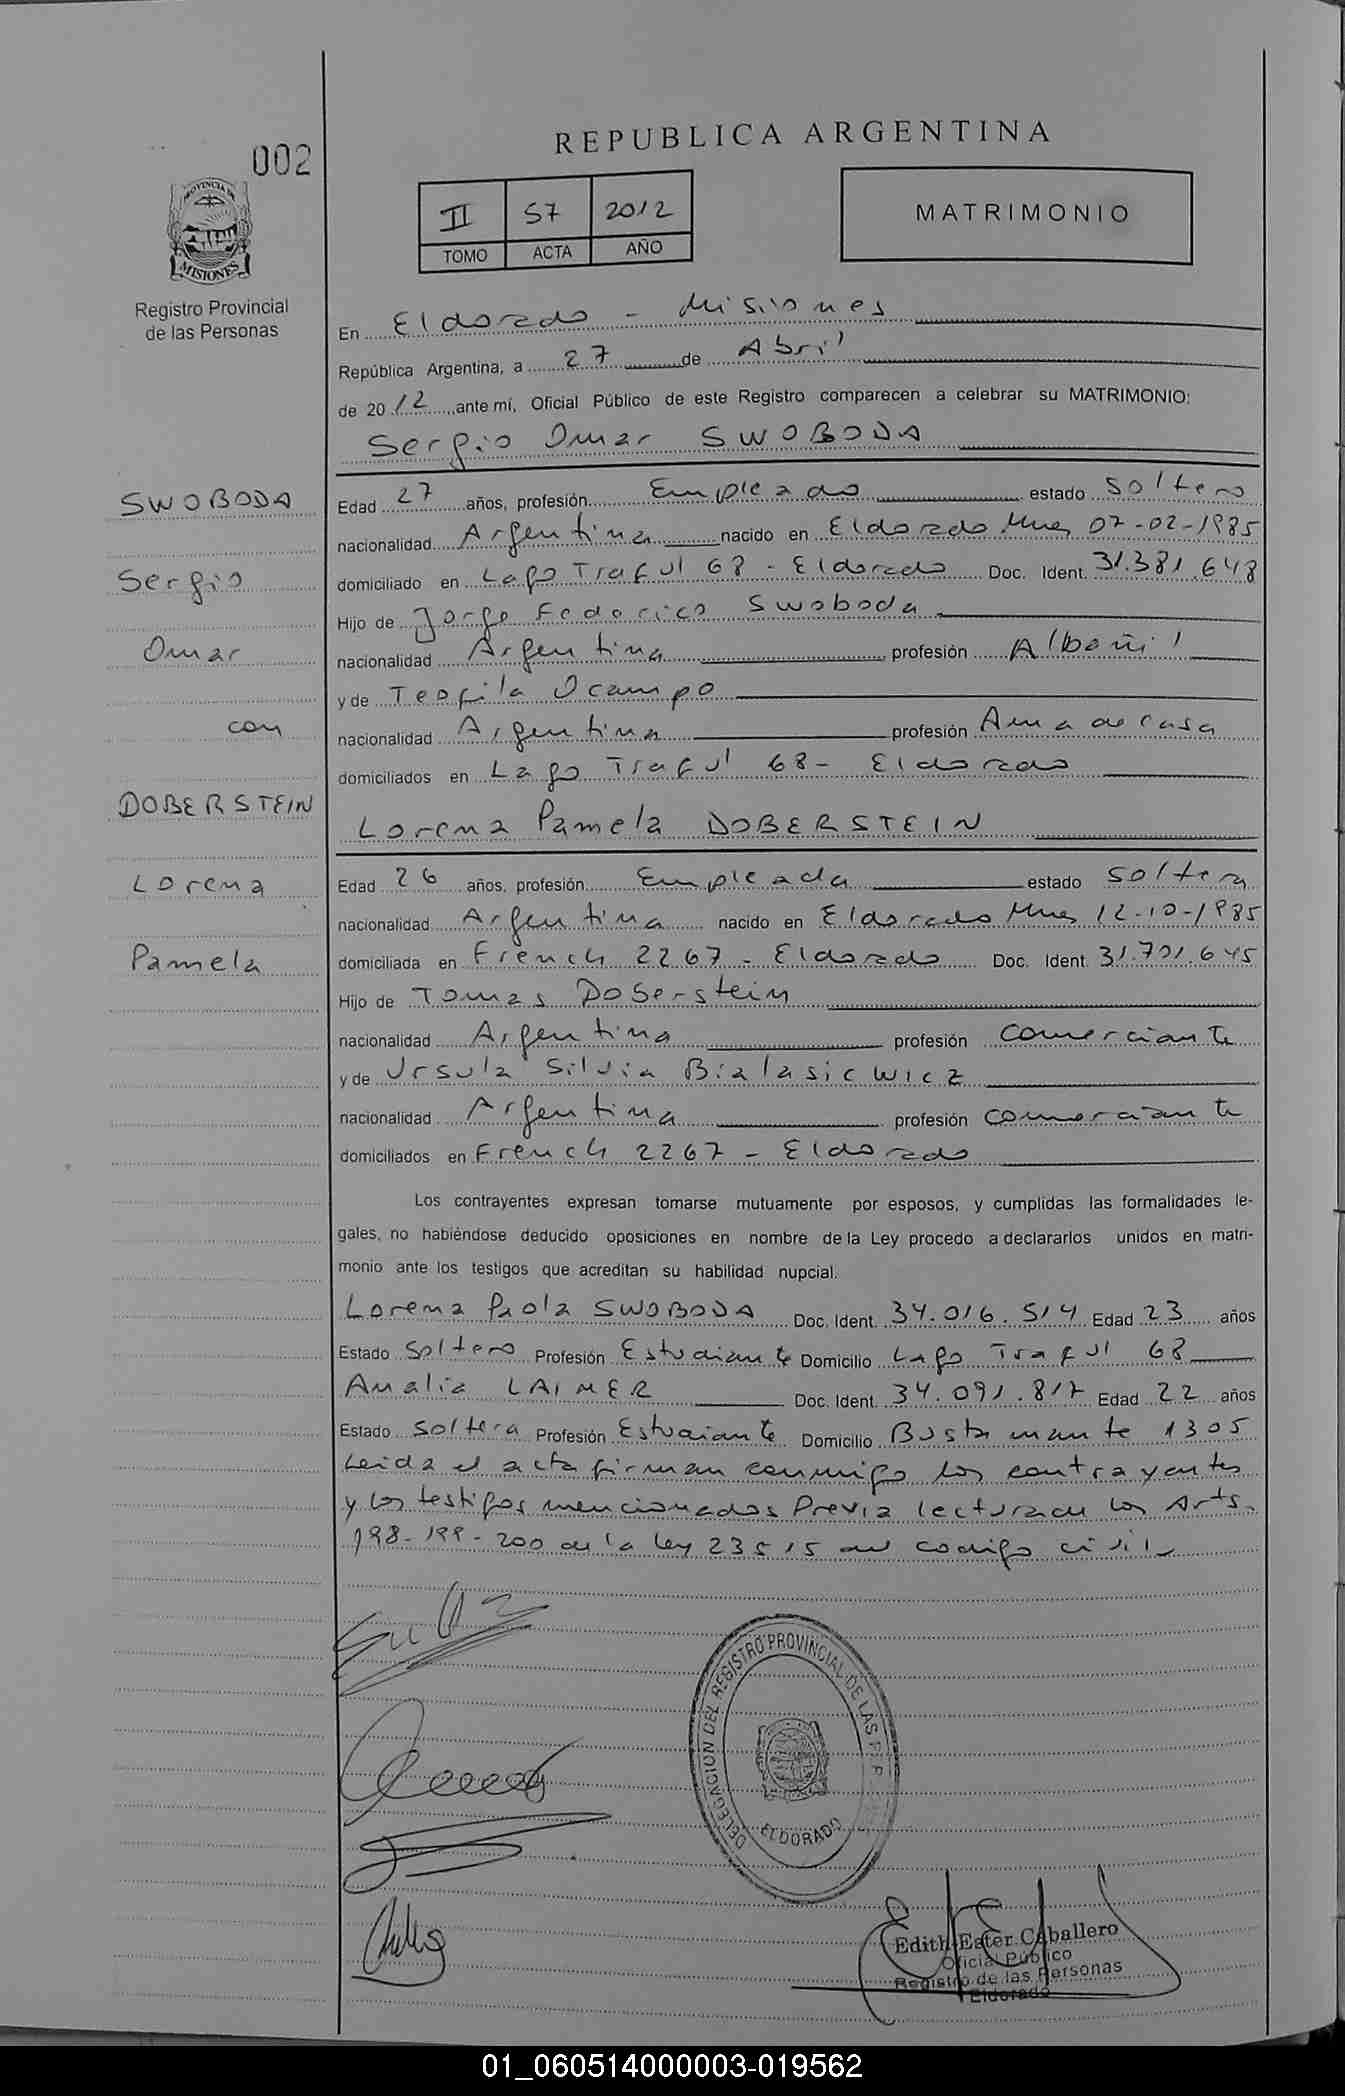 REPUBLICA ARGENTINA
002
PROVINCIA DE
MISIONES
Registro Provincial
de las Personas
II 57 2012
TOMO ACTA AÑO
MATRIMONIO
En Eldorado - Misiones
República Argentina, a 27 de Abril
de 2012 ante mí, Oficial Público de este Registro comparecen a celebrar su MATRIMONIO:
Sergio Omar SWOBODA
SWOBODA
Sergio
Omar
con
DOBERSTEIN
Lorena
Pamela
Edad 27 años, profesión Empleado estado Soltero
nacionalidad Argentina nacido en Eldorado Mnes 07-02-1985
domiciliado en Lago Traful 68 - Eldorado Doc. Ident. 31.381.648
Hijo de Jorge Federico Swoboda
nacionalidad Argentina profesión Albañil
y de Teofila Ocampo
nacionalidad Argentina profesión Ama de casa
domiciliados en Lago Traful 68 - Eldorado
Lorena Pamela DOBERSTEIN
Edad 26 años, profesión Empleada estado soltera
nacionalidad Argentina nacido en Eldorado Mnes 12-10-1985
domiciliada en French 2267 - Eldorado Doc. Ident. 31.701.645
Hijo de Tomas Doberstein
nacionalidad Argentina profesión comerciante
y de Ursula Silvia Bialasicwicz
nacionalidad Argentina profesión comerciante
domiciliados en French 2267 - Eldorado
Los contrayentes expresan tomarse mutuamente por esposos, y cumplidas las formalidades le-
gales, no habiéndose deducido oposiciones en nombre de la Ley procedo a declararlos unidos en matri-
monio ante los testigos que acreditan su habilidad nupcial.
Lorena Paola SWOBODA Doc. Ident. 34.016.514 Edad 23 años
Estado Soltero Profesión Estudiante Domicilio Lago Traful 68
Analia LAIMER Doc. Ident. 34.091.817 Edad 22 años
Estado Soltera Profesión Estudiante Domicilio Bustamante 1305
Leida el acta firman conmigo los contrayentes
y los testigos mencionados Previa lectura de los Arts.
198-199-200 de la Ley 23515 del codigo civil
DELEGACION DEL REGISTRO PROVINCIAL DE LAS PER
ELDORADO
Edith Ester Caballero
Oficial Público
Registro de las Personas
Eldorado
01_060514000003-019562